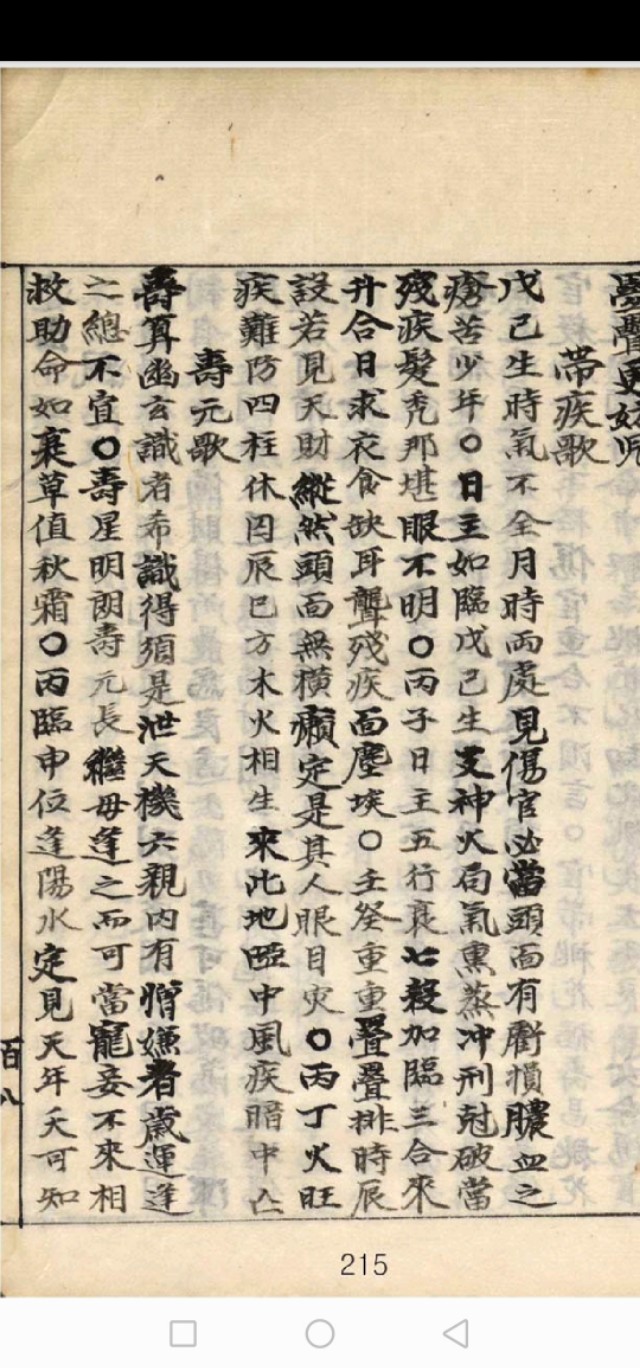 憂疊更
帶疾歌
戊己生時氣不全月時兩處見傷官必當頭面有虧損膿血之
瘡苦少年○日主如臨戊己生支神火局氣熏蒸冲刑尅破當
殘疾髮禿那堪眼不明○丙子日主五行衰七殺加臨三合來
升合日求衣食缺耳聾殘疾面塵埃○壬癸重重疊疊排時辰
設若見天財縱然頭面無横癩定是其人眼目灾○丙丁火旺
疾難防四柱休囚辰巳方木火相生來此地啞中風疾暗中亡
壽元歌
壽算幽玄識者希識得須是泄天機六親内有憎嫌者歲運逢
之總不宜○壽星明朗壽元長繼母逢之而可當寵妾不來相
救助命如衰草值秋霜○丙臨申位逢陽水定見天年夭可知
百八
215